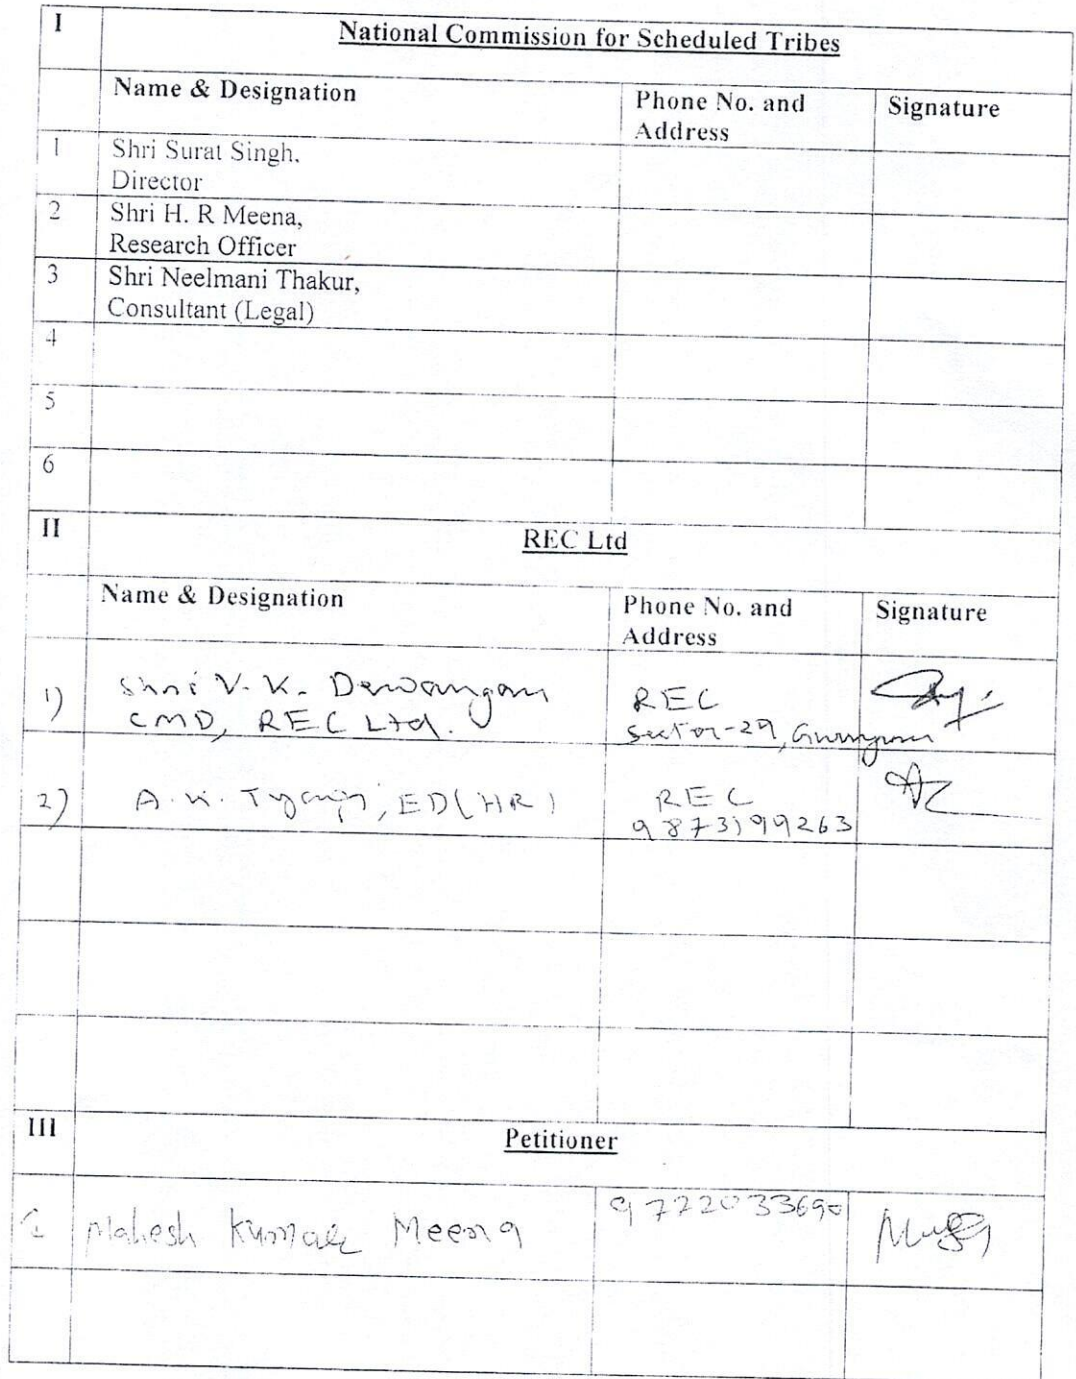 I
National Commission for Scheduled Tribes
Name & Designation
Phone No. and
Address
Signature
1
Shri Surat Singh,
Director
2
Shri H. R Meena,
Research Officer
3
Shri Neelmani Thakur,
Consultant (Legal)
4
5
6
II
REC Ltd
Name & Designation
Phone No. and
Address
Signature
1)
Shri V. K. Dewangan
CMD, REC Ltd.
REC
Sector-29, Gurugram
2)
A. K. Tyagi, ED(HR)
REC
9873199263
III
Petitioner
1
Mahesh Kumar Meena
9722033690